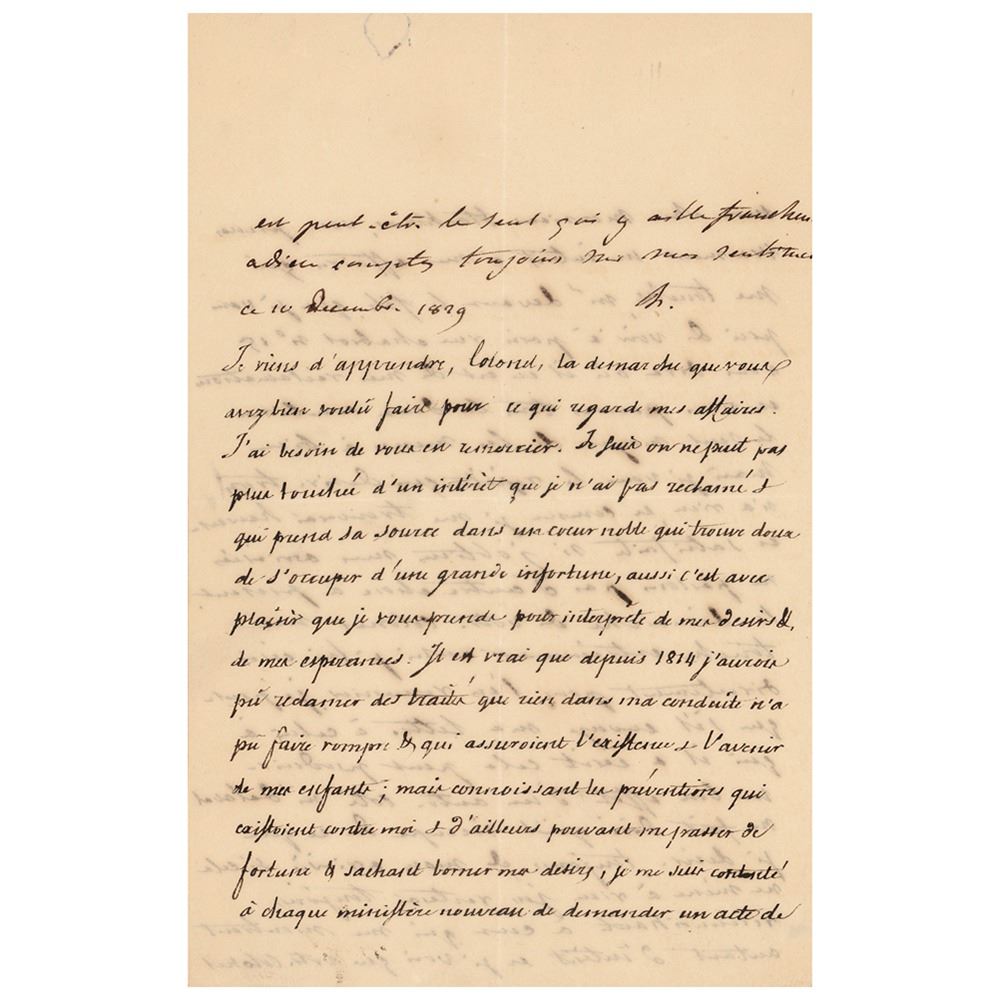 est peut-être le seul qui y aille franchem
adieu comptez toujours sur mes sentimen
ce 10 Decembre 1829 h.
Je viens d'apprendre, Colonel, la demarche que vous
avez bien voulû faire pour ce qui regarde mes affaires.
J'ai besoin de vous en remercier. Je suis on ne peut pas
plus touchée d'un intérêt que je n'ai pas reclamé &
qui prend sa source dans un coeur noble qui trouve doux
de s'occuper d'une grande infortune, aussi c'est avec
plaisir que je vous prends pour interprête de mes desirs &
de mes esperances. Il est vrai que depuis 1814 j'aurois
pû reclamer des traités que rien dans ma conduite n'a
pû faire rompre & qui assuroient l'existence & l'avenir
de mes enfants ; mais connoissant les préventions qui
existoient contre moi & d'ailleurs pouvant me passer de
fortune & sachant borner mes desirs, je me suis contenté
à chaque ministère nouveau de demander un acte de